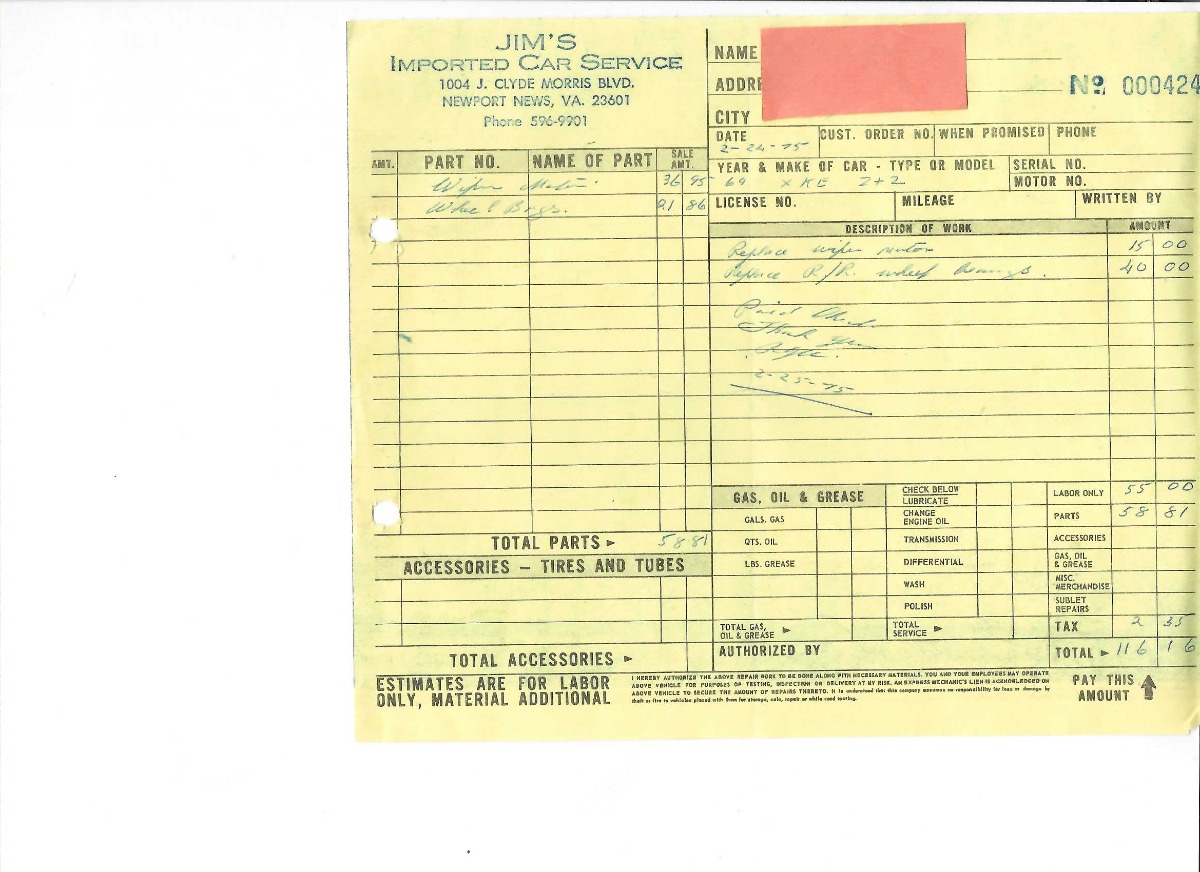 JIM'S
IMPORTED CAR SERVICE
1004 J. CLYDE MORRIS BLVD.
NEWPORT NEWS, VA. 23601
Phone 596-9901
NAME
ADDRE
CITY
Nº 000424
DATE CUST. ORDER NO. WHEN PROMISED PHONE
2-24-75
YEAR & MAKE OF CAR - TYPE OR MODEL SERIAL NO.
69 XKE 2+2 MOTOR NO.
LICENSE NO. MILEAGE WRITTEN BY
AMT. PART NO. NAME OF PART SALE AMT.
Wiper Motor 36 95
Wheel Brgs. 21 86
DESCRIPTION OF WORK AMOUNT
Replace wiper motor 15 00
Replace R/R. wheel bearings. 40 00
Paid Check
Thank You
2-25-75
TOTAL PARTS ► 58 81
ACCESSORIES — TIRES AND TUBES
TOTAL ACCESSORIES ►
GAS, OIL & GREASE
GALS. GAS
QTS. OIL
LBS. GREASE
TOTAL GAS, OIL & GREASE ►
CHECK BELOW
LUBRICATE
CHANGE ENGINE OIL
TRANSMISSION
DIFFERENTIAL
WASH
POLISH
TOTAL SERVICE ►
LABOR ONLY 55 00
PARTS 58 81
ACCESSORIES
GAS, OIL & GREASE
MISC. MERCHANDISE
SUBLET REPAIRS
TAX 2 35
AUTHORIZED BY
TOTAL ► 116 16
ESTIMATES ARE FOR LABOR
ONLY, MATERIAL ADDITIONAL
I HEREBY AUTHORIZE THE ABOVE REPAIR WORK TO BE DONE ALONG WITH NECESSARY MATERIALS. YOU AND YOUR EMPLOYEES MAY OPERATE
ABOVE VEHICLE FOR PURPOSES OF TESTING, INSPECTION OR DELIVERY AT MY RISK. AN EXPRESS MECHANIC'S LIEN IS ACKNOWLEDGED ON
ABOVE VEHICLE TO SECURE THE AMOUNT OF REPAIRS THERETO. It is understood that this company assumes no responsibility for loss or damage by
theft or fire to vehicles placed with them for storage, sale, repair or while road testing.
PAY THIS
AMOUNT